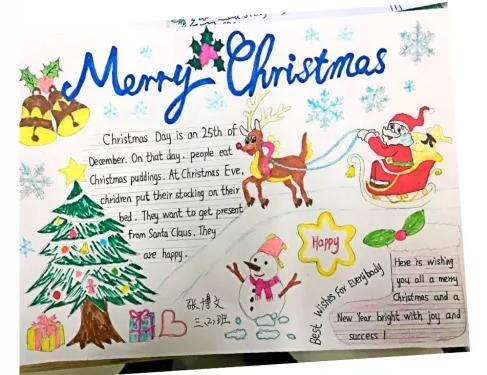 Merry Christmas
Christmas Day is an 25th of
December. On that day, people eat
Christmas puddings. At Christmas Eve,
children put their stocking on their
bed. They want to get present
from Santa Claus. They
are happy.
Happy
Best Wishes For Everybody
Here is wishing
you all a merry
Christmas and a
New Year bright with joy and
success!
张博文